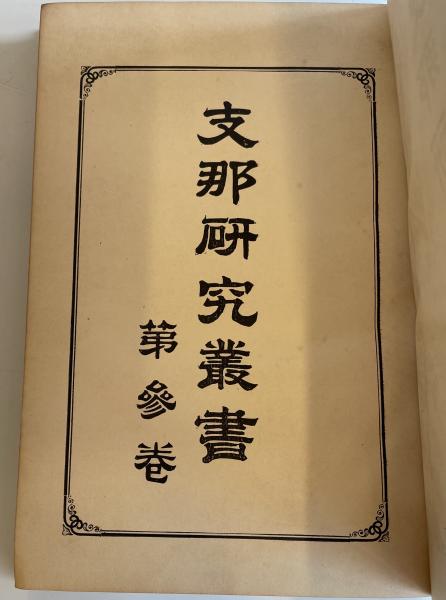 支那研究叢書
第參卷